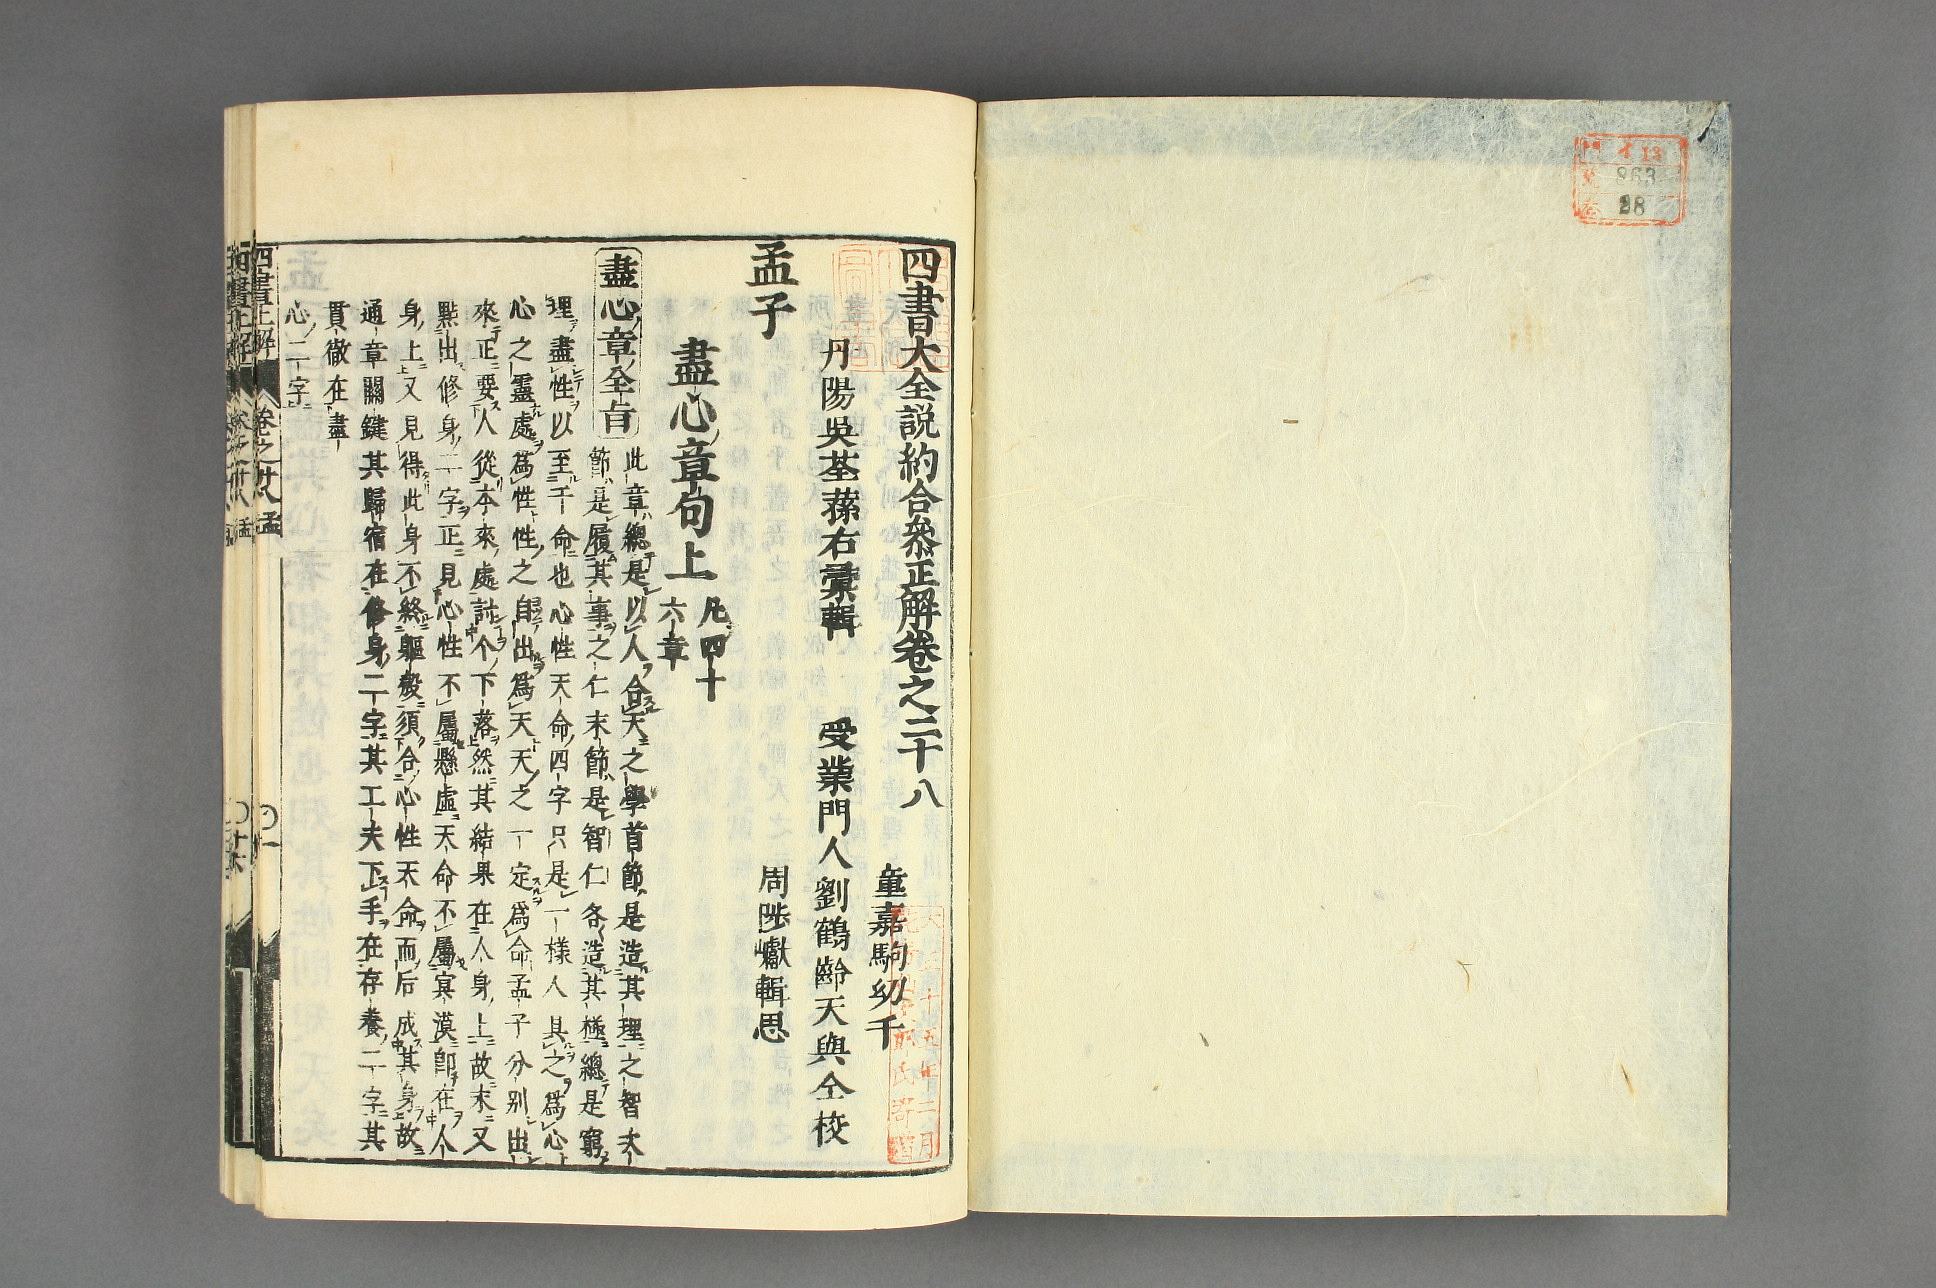 イ13
863
28
四書大全説約合叅正解卷之二十八
丹陽吳荃蓀右彙輯
童嘉駒㓜千
受業門人劉鶴齡天與仝校
周陛巘輯思
孟子
盡心章句上
凡四十
六章
盡心章全旨
此章總是以人合天之學首節是造其理之智次
節是履其事之仁末節是智仁各造其極總是窮
理盡性以至于命也心性天命四字只是一様人具之爲心
心之靈處爲性性之自出爲天天之一定爲命孟子分别出
來正要人從本來處討个下落然其結果在人身上故末又
點出修身二字正見心性不屬懸虛天命不屬㝠漠卽在人
身上又見得此身不終軀殼須合心性天命而后成其身故
通章關鍵其歸宿在修身二字其工夫下手在存養二字其
貫徹在盡
心二字
四書正解
卷之廿八
孟
〇一